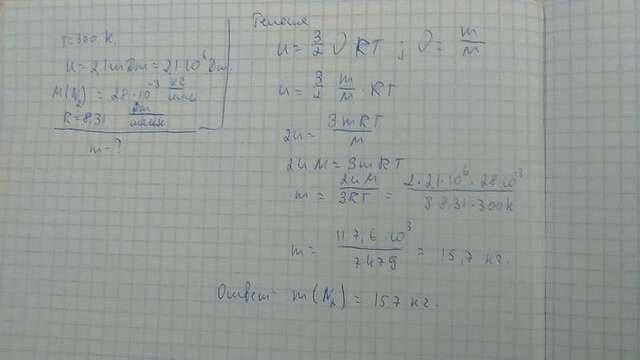 T=300 К.
U=21 мДж=21·10⁶ Дж.
M(N₂) = 28·10⁻³ кг/моль
R=8,31 Дж/
m-?
U= 3/2 υ RT ; υ= m/M
U= 3/2 m/M · RT
2U= 3mRT/M
2UM=3mRT
m = 2UM/3RT = 2·21·10⁶·28·10³/3 8,31·300К
m= 117,6 10³/7479 = 15,7 кг.
Ответ: m(N₂) = 157 кг.